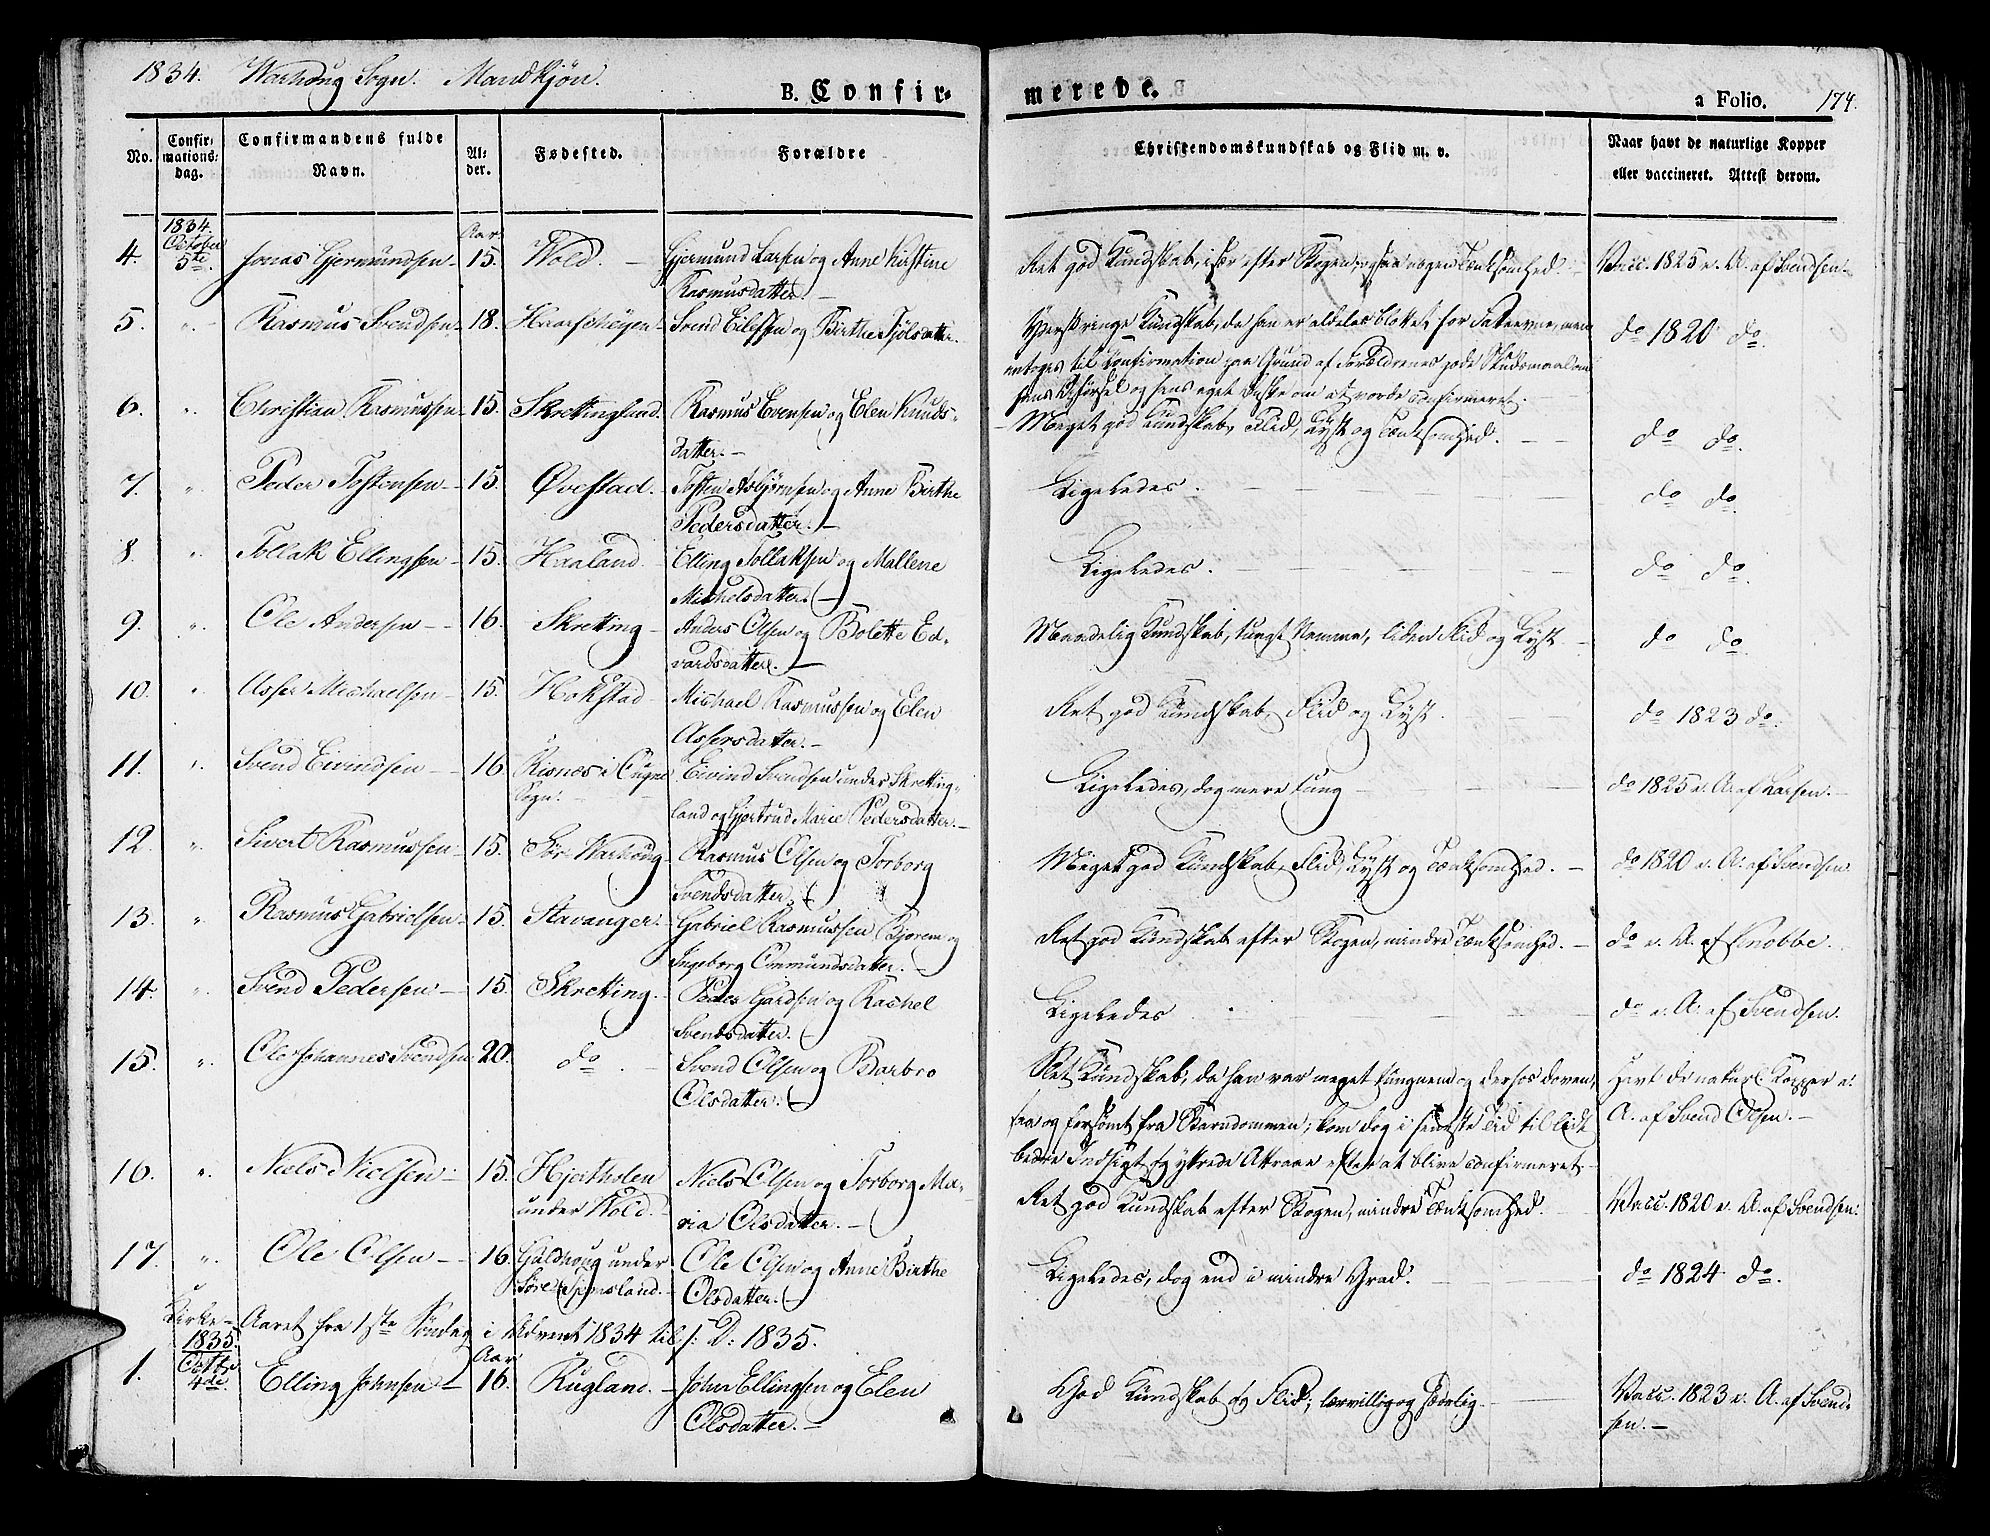 1834. Warhoug Sogn. Mandkjøn.
B. Confirmerede.
a Folio. 174.
No. Confirmations-dag. Confirmandens fulde Navn. Alder. Fødested. Forældre Christendomskundskab og Flid m. v. Naar havt de naturlige Kopper eller vaccineret. Attest derom.
1834. Aar
4. October 5te. Jonas Gjermundsen 15. Wold. Gjermund Larsen og Anne Kirstine Ret god Kundskab, især efter Bogen, ogsaa nogen Tænksomhed. Vacc. 1825 e. A. af Svendsen.
Rasmusdatter.
5. " Rasmus Svendsen 18. Svend og Birthe Kundskab, da han er aldeles blottet for Fatteevne, men do 1820 do.
antoges til Confirmation paa Grund af Forældrenes gode Skudsmaal om
hans Opførsel og hans eget Ønske om at vorde confirmeret.
6. " Christian Rasmussen 15. Skrettingland. Rasmus Evensen og Elen Knuds- Meget god Kundskab, Flid, Lyst og Tænksomhed. do do.
datter.
7. " Peder Tostensen 15. Øvestad. Tosten Asbjørnsen og Anne Birthe Ligeledes. do do.
Pedersdatter.
8. " Tollak Ellingsen 15. Haaland Elling Tollaksen og Mallene Ligeledes. do do.
Michelsdatter.
9. " Ole Andersen 16. Skretting Anders Olsen og Bolette Ed- Maadelig Kundskab, tungt Nemme, liden Flid og Lyst do do.
vardsdatter.
10. " Asser Michaelsen 15. Hokstad Michael Rasmussen og Elen Ret god Kundskab, Flid og Lyst. do 1823 do.
Assersdatter.
11. " Svend Eivindsen 16 Risnes i Eivind Svendsen under Skretting- Ligeledes, dog mere tung do 1825 e. A. af Larsen.
Sogn. land og Gjertrud Marie Pedersdatter.
12. " Sivert Rasmussen 15. Sør-Warhoug Rasmus Olsen og Torborg Meget god Kundskab, Flid, Lyst og Tænksomhed. do 1820 e. A. af Svendsen
Svendsdatter.
13. " Rasmus Gabrielsen 15. Stavanger. Gabriel Rasmussen Bjorem og Ret god Kundskab efter Bogen, mindre Tænksomhed. do e. A. af Knobbe.
Ingeborg Ommundsdatter.
14. " Svend Pedersen 15. Skretting. Peder Gardsen og Rachel Ligeledes do e. A. af Svendsen.
Svendsdatter.
15. " Ole Johannes Svendsen 20. do Svend Olsen og Barbro Slet Kundskab, da han var meget tungnem og derhos doven, Havt de naturl. Kopper e.
Olsdatter. saa og forsømt fra Barndommen; kom dog i seneste Tid til lidt A. af Svend Olsen.
bedre Indsigt og yttrede Attraae efter at blive confirmeret
16. " Niels Nielsen 15. Hjortholen Niels Olsen og Torborg Ma- Ret god Kundskab efter Bogen, mindre Tænksomhed. Vacc. 1820 e. A. af Svendsen.
under Wold. ria Olsdatter.
17. " Ole Olsen 16. Guldhoug under Ole Olsen og Anne Birthe Ligeledes, dog end i mindre Grad. do 1824 do.
Søre Olsdatter.
Kirke-Aaret fra 1ste Søndag i Advent 1834 til s: D: 1835.
1835. Aar
1. Octbr 4de. Elling Johnsen 16. Rugland. John Ellingsen og Elen God Kundskab og Flid; lærvillig og sædelig. Vacc. 1823 e. A. af Svend-
Olsdatter. sen.